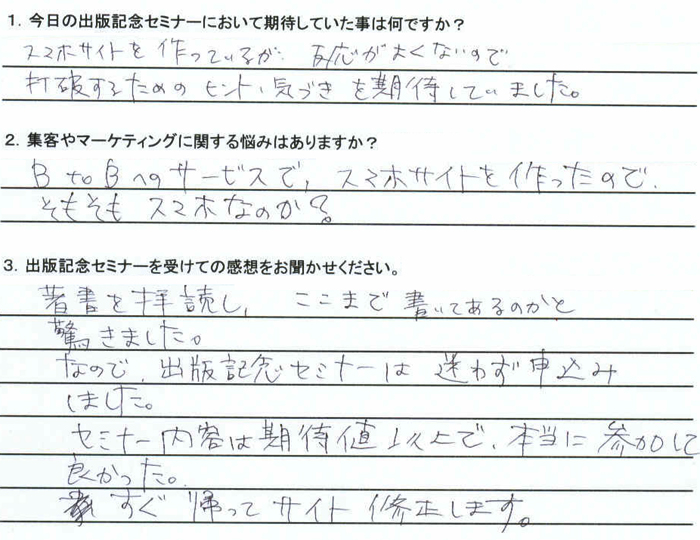 1. 今日の出版記念セミナーにおいて期待していた事は何ですか？
スマホサイトを作っているが、反応がよくないので
打破するためのヒント、気づきを期待していました。
2. 集客やマーケティングに関する悩みはありますか？
B to Bへのサービスで、スマホサイトを作ったので、
そもそもスマホなのか？
3. 出版記念セミナーを受けての感想をお聞かせください。
著書を拝読し、ここまで書いてあるのかと
驚きました。
なので、出版記念セミナーは迷わず申込み
しました。
セミナー内容は期待値以上で、本当に参加して
良かった。
すぐ帰ってサイト修正します。